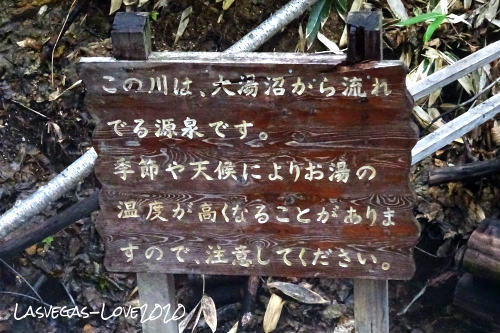 この川は、大湯沼から流れ
でる源泉です。
季節や天候によりお湯の
温度が高くなることがありま
すので、注意してください。
LasVegas-Love2020